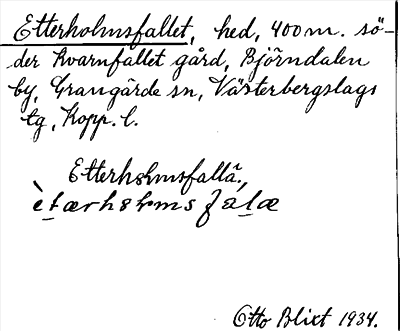 Etterholmsfallet, hed, 400 m. sö-
der Kvarnfallet gård, Björndalen
by, Grangärde sn, Västerbergslags
tg, Kopp. l.
Etterhshmsfallä.,
Otto Blixt 1934.